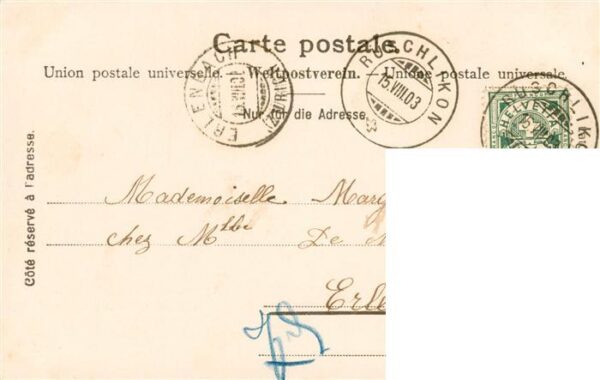 Carte postale.
Union postale universelle. – Weltpostverein. – Unione postale universale.
Nur für die Adresse.
ERLENBACH (ZÜRICH)
15.VIII.03
RÜSCHLIKON
15.VIII.03
RÜSCHLIKO
HELVETIA
Côté réservé à l'adresse.
Mademoiselle Marg
chez Mlle De
Erle